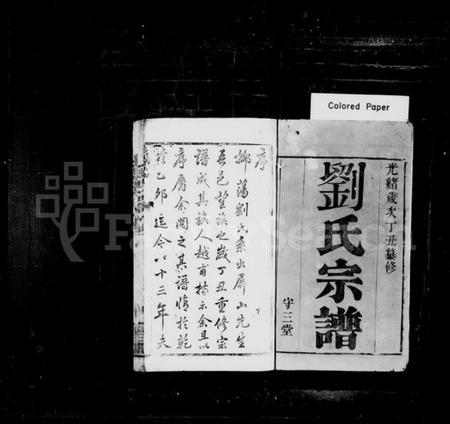 Colored Paper
光緒歲次丁丑纂修
劉氏宗譜
守三堂
序
柳蕩劉氏系出屏山先生
吾邑望族也歲丁丑重修宗
譜成其族人越甫持示余且以
序屬余閱之其譜修於乾
隆乙卯迄今八十三年矣
FamilySearch